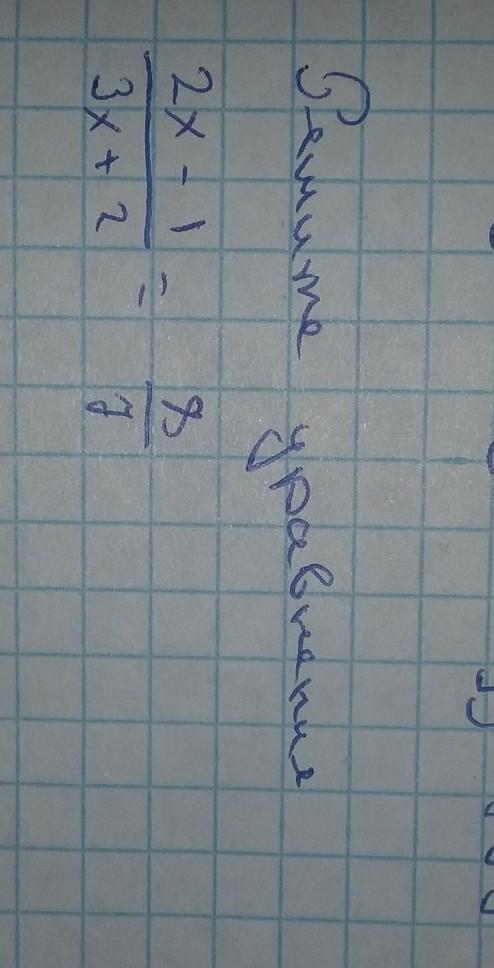 Решите уравнение
2x - 1 / 3x + 2 = 8 / 7